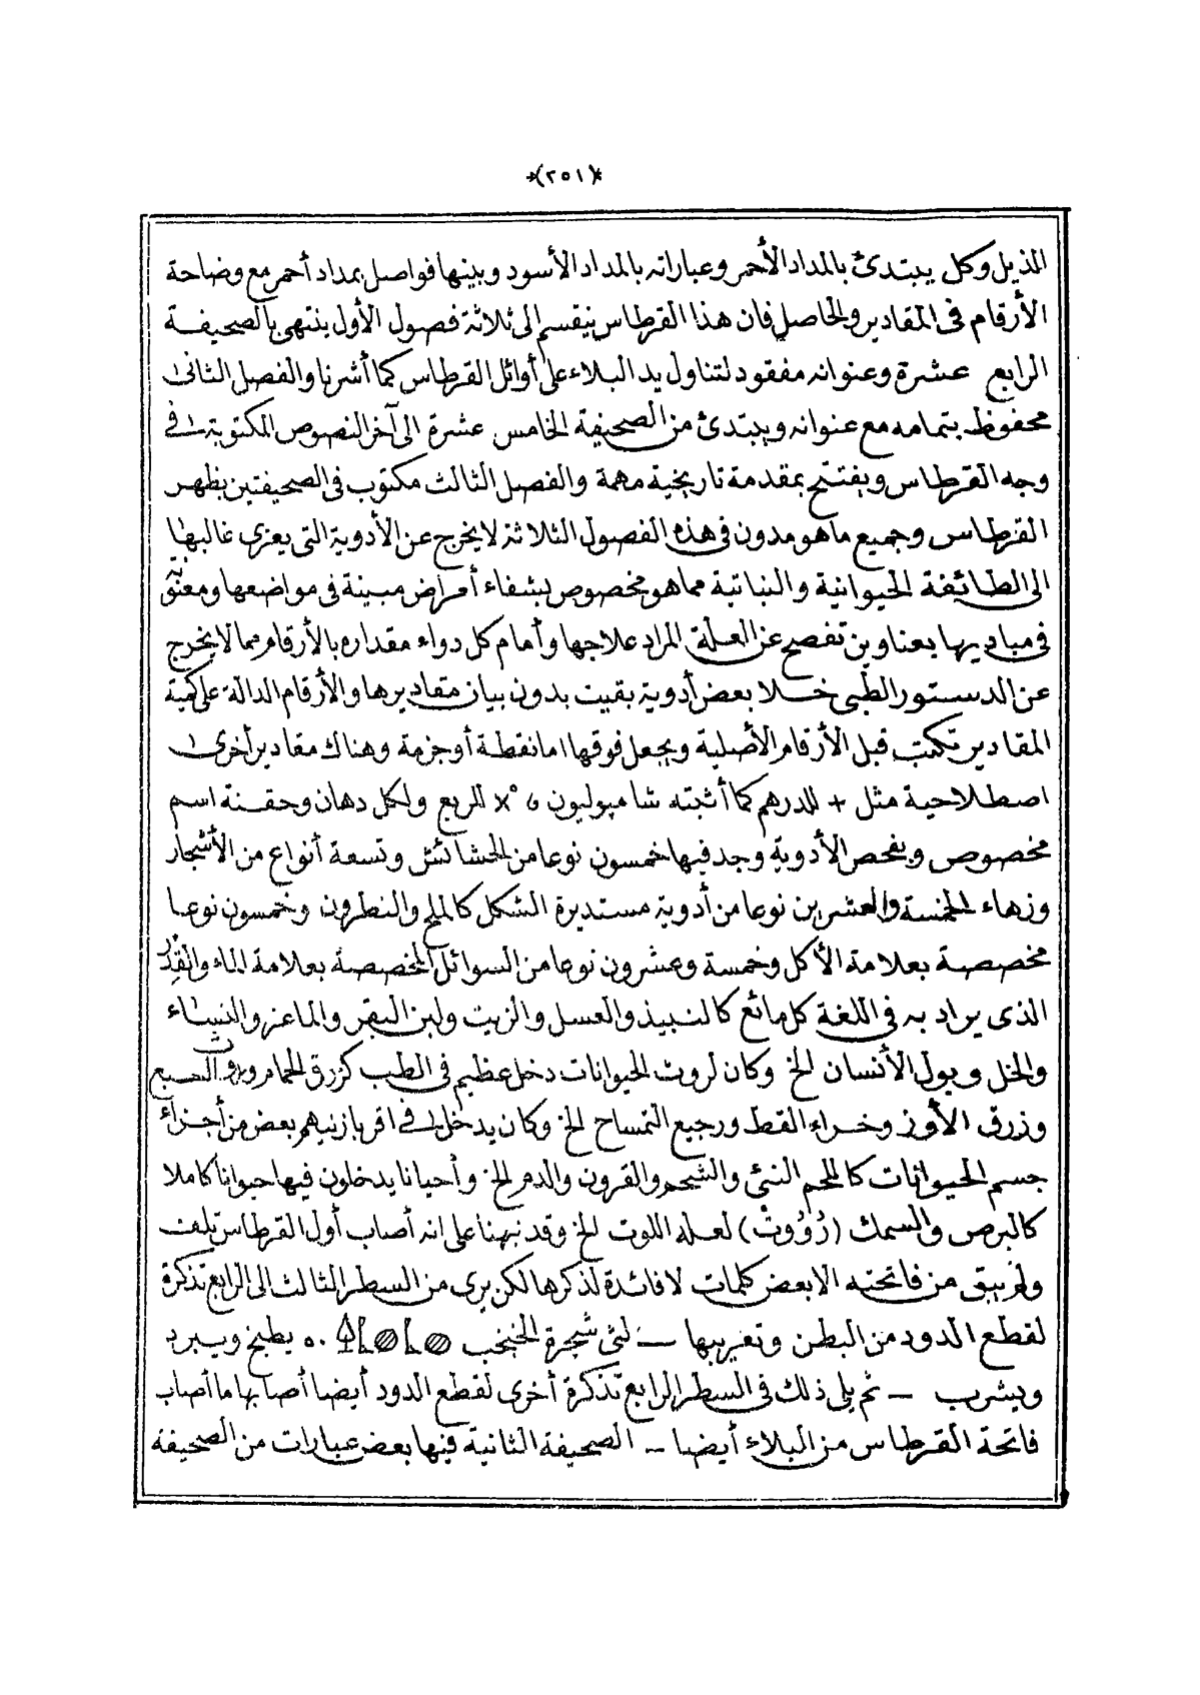 *(٢٥١)*
الذيل وكل يبتدئ بالمداد الأحمر وعباراته بالمداد الأسود وبينها فواصل بمداد أحمر مع وضاحة
الأرقام فى المقادير والحاصل فان هذا القرطاس ينقسم الى ثلاثة فصول الأول ينتهى بالصحيفة
الرابع عشرة وعنوانه مفقود لتناول يد البلاء على أوائل القرطاس كما أشرنا والفصل الثانى
محفوظ بتمامه مع عنوانه ويبتدئ من الصحيفة الخامس عشرة الى آخر النصوص المكتوبة فى
وجه القرطاس ويفتتح بمقدمة تاريخية مهمة والفصل الثالث مكتوب فى الصحيفتين بظهر
القرطاس وجميع ما هو مدون فى هذه الفصول الثلاثة لا يخرج عن الأدوية التى يعزى غالبها
الى الطائفة الحيوانية والنباتية مما هو مخصوص بشفاء أمراض مبينة فى مواضعها ومعنونة
فى مباديها بعناوين تفصح عن العلة المراد علاجها وأمام كل دواء مقداره بالأرقام مما لا يخرج
عن الدستور الطبى خلا بعض أدوية بقيت بدون بيان مقاديرها والأرقام الدالة على كمية
المقادير تكتب قبل الأرقام الأصلية ويجعل فوقها اما نقطة أو جزمة وهناك مقادير أخرى
اصطلاحية مثل + للدرهم كما أثبته شامپوليون و x° للربع ولكل دهان وحقنة اسم
مخصوص وبفحص الأدوية وجد فيها خمسون نوعا من الحشائش وتسعة أنواع من الأشجار
وزهاء الخمسة والعشرين نوعا من أدوية مستديرة الشكل كالملح والنطرون وخمسون نوعا
مخصصة بعلامة الأكل وخمسة وعشرون نوعا من السوائل المخصصة بعلامة الماء والقِدْر
الذى يراد به فى اللغة كل مائع كالنبيذ والعسل والزيت ولبن البقر والماعز والنساء
والخل وبول الأنسان الخ وكان لروث الحيوانات دخل عظيم فى الطب كزرق الحمام وروث الضبع
وزرق الأوز وخراء القط ورجيع التمساح الخ وكان يدخل فى اقربازينهم بعض من أجزاء
جسم الحيوانات كاللحم النئ والشحم والقرون والدم الخ وأحيانا يدخلون فيها حيوانا كاملا
كالبرص والسمك (رُوُوتْ) لعله اللوت الخ وقد نبهنا على انه أصاب أول القرطاس تلف
ولم يبق من فاتحته الا بعض كلمات لا فائدة لذكرها لكن يرى من السطر الثالث الى الرابع تذكرة
لقطع الدود من البطن وتعريبها — لثى شجرة الخنخب ٥٠ يطبخ ويبرد
ويشرب — ثم يلى ذلك فى السطر الرابع تذكرة أخرى لقطع الدود أيضا أصابها ما أصاب
فاتحة القرطاس من البلاء أيضا — الصحيفة الثانية فيها بعض عبارات من الصحيفة